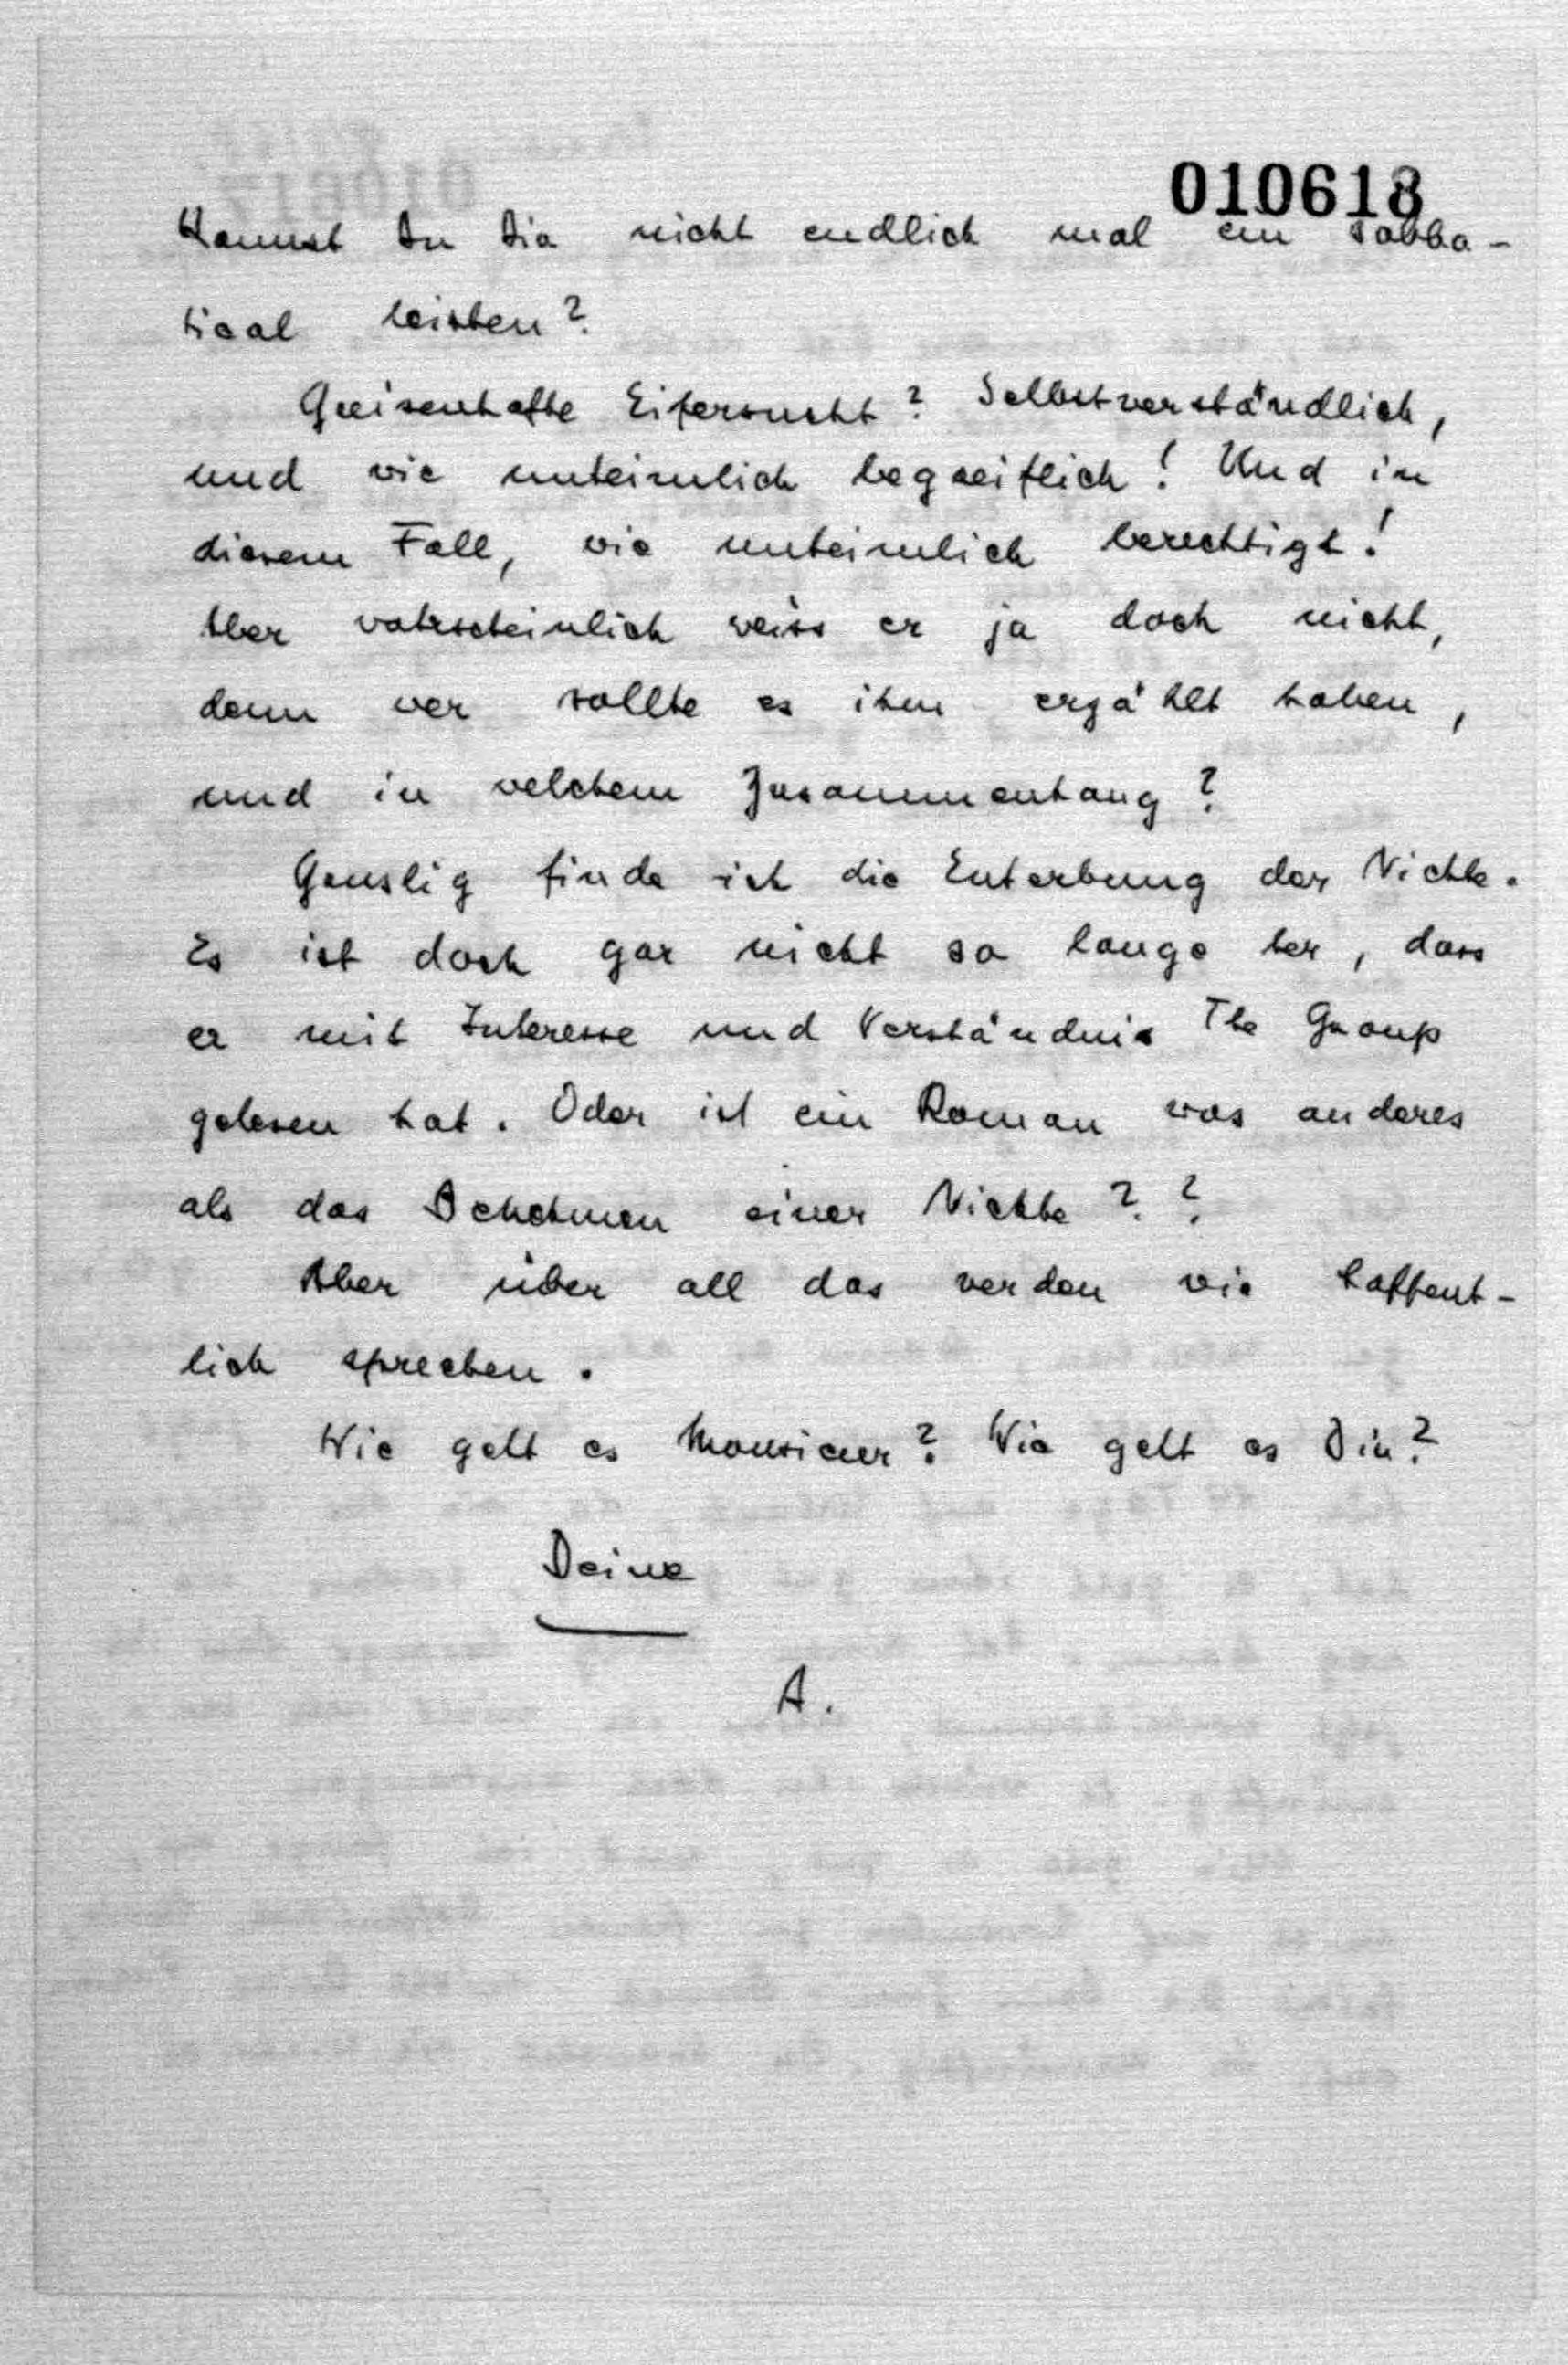 010618
Kannst Du Dir nicht endlich mal ein Sabba-
tical leisten?
Greisenhafte Eifersucht? Selbstverständlich,
und wie unheimlich begreiflich! Und in
diesem Fall, wie unheimlich berechtigt!
Aber wahrscheinlich weiss er ja doch nicht,
denn wer sollte es ihm erzählt haben,
und in welchem Zusammenhang?
Gruslig finde ich die Enterbung der Nichte.
Es ist doch gar nicht so lange her, dass
er mit Interesse und Verständnis The Group
gelesen hat. Oder ist ein Roman was anderes
als das Benehmen einer Nichte??
Aber über all das werden wir hoffent-
lich sprechen.
Wie geht es Monsieur? Wie geht es Dir?
Deine
A.